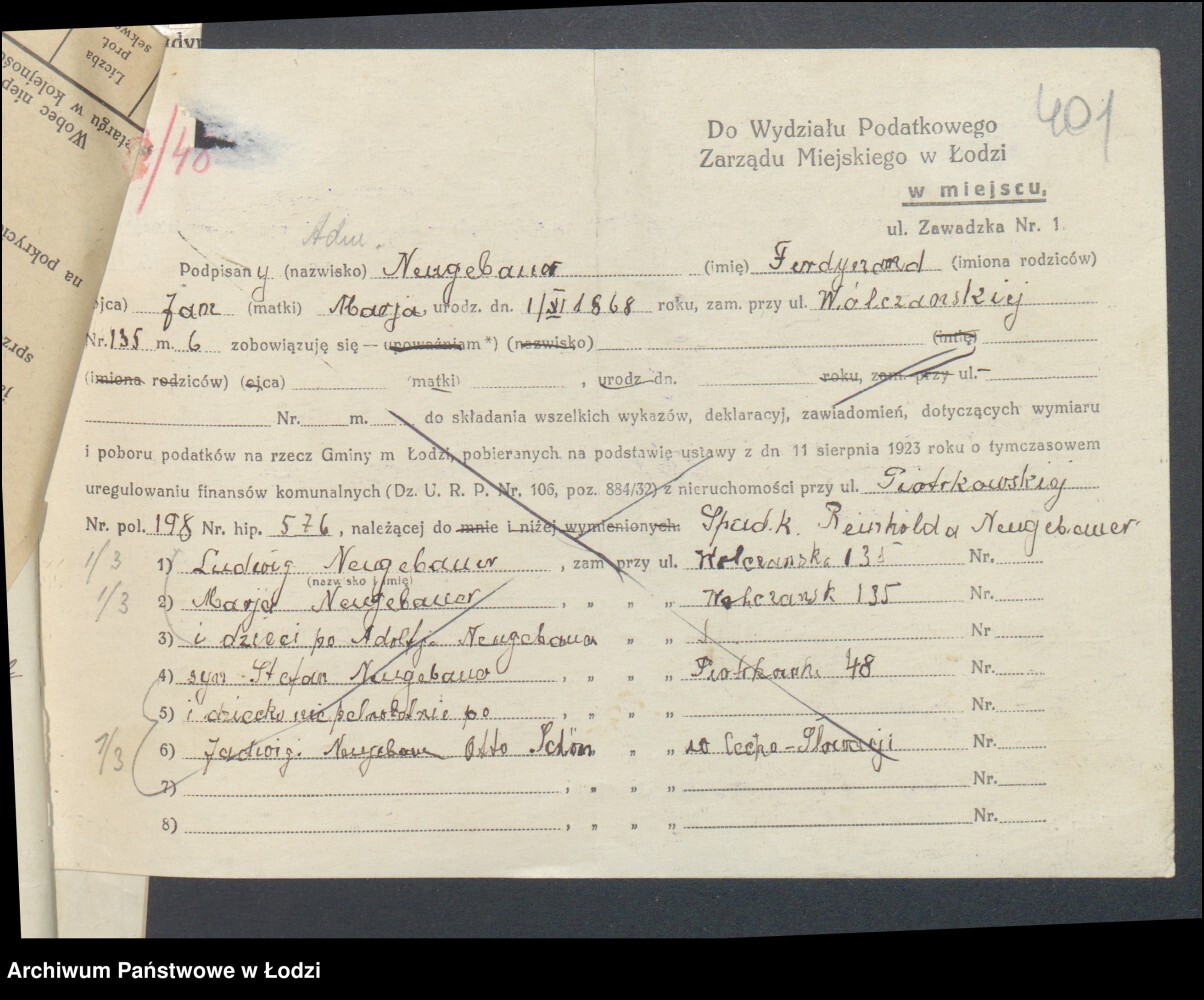 Liczba
prot.
sekw
Wobec niep
etargu w kolejnoś
na pokryci
sprz
401
/40
Do Wydziału Podatkowego
Zarządu Miejskiego w Łodzi
w miejscu.
ul. Zawadzka Nr. 1
Adm.
Podpisany (nazwisko) Neugebauer (imię) Ferdynand (imiona rodziców)
ojca) Jan (matki) Marja urodz. dn. 1/XI 1868 roku, zam. przy ul. Wólczańskiej
Nr. 135 m. 6 zobowiązuję się — upoważniam *) (nazwisko) (imię)
(imiona rodziców) (ojca) (matki) , urodz dn. roku, zam. przy ul.
Nr. m. do składania wszelkich wykazów, deklaracyj, zawiadomień, dotyczących wymiaru
i poboru podatków na rzecz Gminy m Łodzi, pobieranych na podstawie ustawy z dn 11 sierpnia 1923 roku o tymczasowem
uregulowaniu finansów komunalnych (Dz. U. R. P. Nr. 106, poz. 884/32) z nieruchomości przy ul. Piotrkowskiej
Nr. pol. 198 Nr. hip. 576 , należącej do mnie i niżej wymienionych: Spadk. Reinholda Neugebauer
1/3 1) Ludwig Neugebauer , zam przy ul. Wolczanska 135 Nr.
(nazwisko i imię)
1/3 2) Marja Neugebauer , „ „ „ Wolczansk 135 Nr.
3) i dzieci po Adolfj. Neugebauer „ „ Nr
4) syn Stefan Neugebauer , „ „ „ Piotrkowsk. 48 Nr.
5) i dziecko niepełnoletnie po , „ „ „ Nr.
1/3 6) Jadwig. Neugebauer Otto Schön „ „ w Czecho-Słowacji Nr.
7) , „ „ „ Nr.
8) , „ „ „ Nr.
Archiwum Państwowe w Łodzi